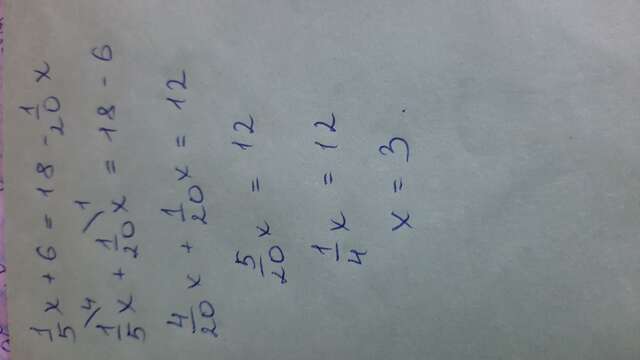 1/5 x + 6 = 18 - 1/20 x
1/5 \4 x + 1/20 \1 x = 18 - 6
4/20 x + 1/20 x = 12
5/20 x = 12
1/4 x = 12
x = 3.